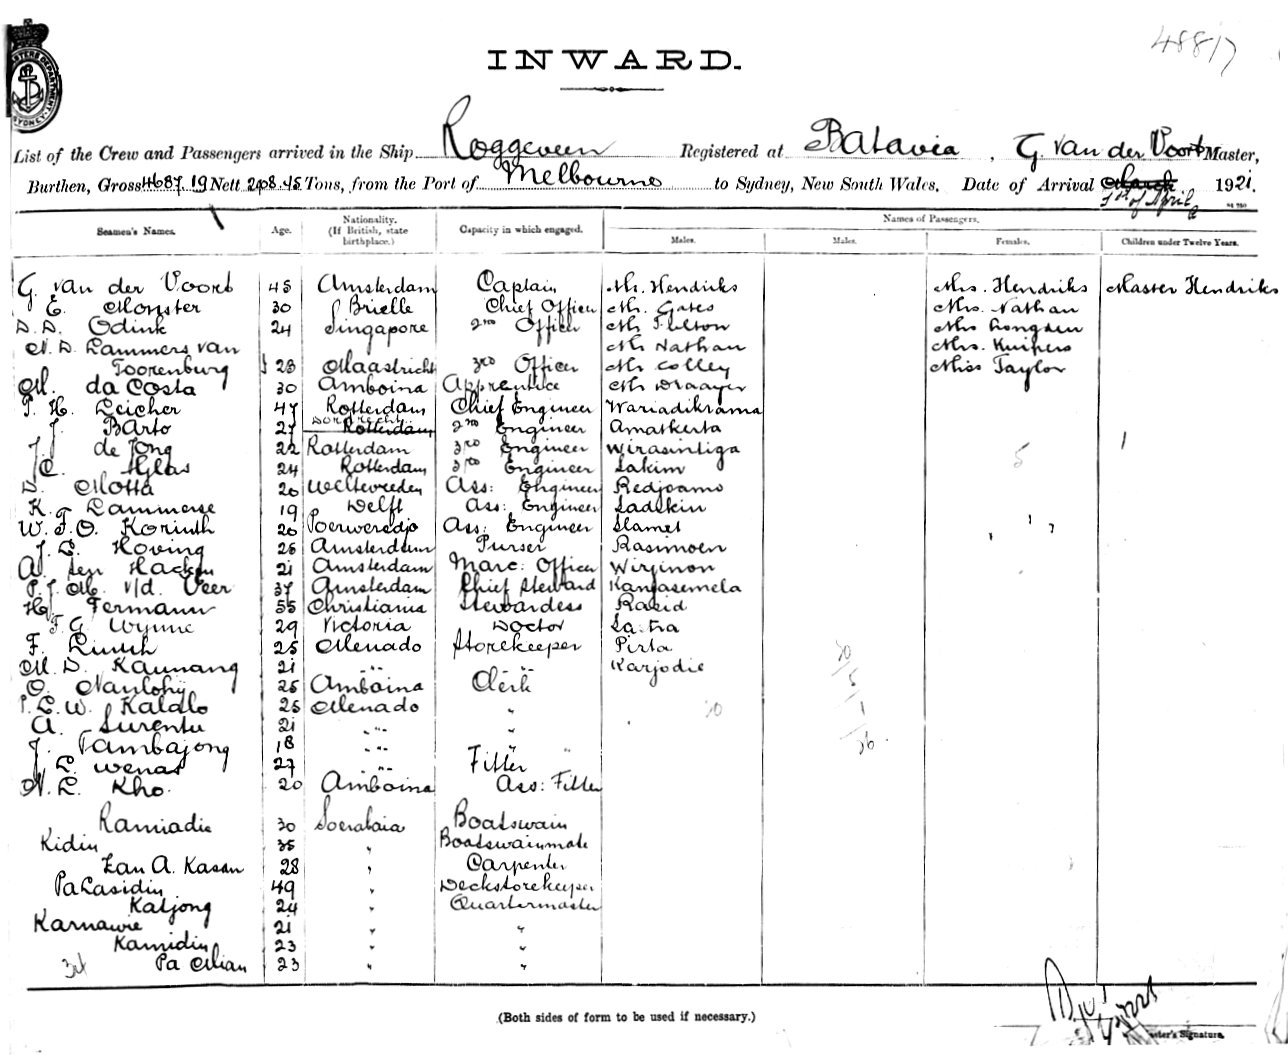 48817
INWARD.
List of the Crew and Passengers arrived in the Ship Roggeveen Registered at Batavia, G. van der Voort Master,
Burthen, Gross 4687.19 Nett 2908.45 Tons, from the Port of Melbourne to Sydney, New South Wales, Date of Arrival March 1921.
1st of April
Seamen's Names. Age. Nationality. (If British, state birthplace.) Capacity in which engaged. Names of Passengers.
Males. Males. Females. Children under Twelve Years.
G. van der Voort 45 Amsterdam Captain Mr. Hendriks Mrs. Hendriks Master Hendriks
E. Monster 30 Brielle Chief Officer Mr. Gates Mrs. Nathan
D. D. Odink 24 Singapore 2nd Officer Mr Fulton Mrs Longden
N. D. Lammers van Mr Nathan Mrs. Kuipers
Toorenburg 28 Maastricht 3rd Officer Mr Colley Miss Taylor
M. da Costa 30 Amboina Apprentice Mr Draayer
P. H. Leicher 47 Rotterdam Chief Engineer Wariadikrama
J. Barto 27 Dordrecht Rotterdam 2nd Engineer Amatkerta
J. J. de Jong 22 Rotterdam 3rd Engineer Wirasintiga 5 1
C. Hylas 24 Rotterdam 3rd Engineer Sakim
D. Motta 20 Weltevreden Ass: Engineer Redjoamo
K. Lammerse 19 Delft Ass: Engineer Sadekin
W. F. O. Korinth 20 Poerweredjo Ass: Engineer Slamet
J. L. Hoving 25 Amsterdam Purser Rasimoen
A. ten Hacken 21 Amsterdam Marc: Officer Wirjinon
P. J. M. v/d. Veer 37 Amsterdam Chief Steward Kanjasemela
Hg. Fermann 55 Christiania Stewardess Rasid
F. G. Wynne 29 Victoria Doctor Sastra
F. 25 Menado Storekeeper Pirta
M. D. Kaunang 21 " " " " Karjodie 20
O. Nanlohij 25 Amboina Clerk 5
P. L. W. Kalalo 25 Menado " 20 1
A. Surentu 21 " " "
J. Tambajong 18 " " " " 26
J. L. Wenas 27 " " Fitter
N. L. Kho. 20 Amboina Ass: Fitter
Ramiadie 30 Soerabaia Boatswain
Kidin 35 " Boatswainmate
Zan A. Kasan 28 " Carpenter
Pa Lasidin 49 " Deckstorekeeper
Katjong 24 " Quartermaster
Karnawie 21 " "
Kamidin 23 " "
34 Pa Alian 23 " "
(Both sides of form to be used if necessary.)
Master's Signature.